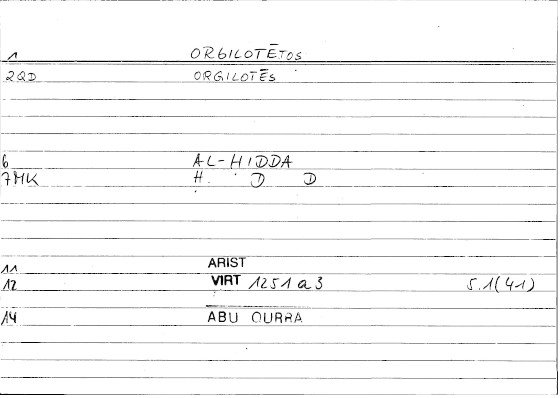 1 ORGILOTĒTOS
2QD ORGILOTĒS
6 AL-HIDDA
7MK H. D D
11 ARIST
12 VIRT 1251 a 3 5.1(41)
14 ABU QURRA